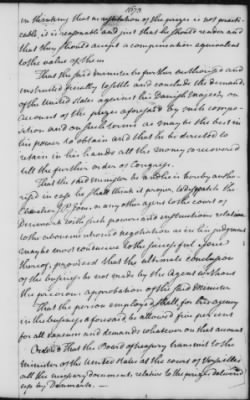 informing him that as restitution of the prizes is not practi-
cable, it is reasonable and just that he should render and
that they should accept a compensation equivalent
to the value of them
That the said minister be further authorised and
instructed directly to settle and conclude the demand
of the United States against his Danish Majesty, on
account of the prizes aforesaid by such compo-
sition and on such terms as may be the best in
his power to obtain and that he be directed to
retain in his hands all the money so recovered
till the further order of Congress.
That the said minister be and he is hereby autho-
rised in case he shall think it proper, to dispatch the
Chevalier J. P. Jones or any other agent to the court of
Denmark with such powers and instructions relative
to the abovementioned negotiation as in his judgment
may be most conducive to the successful issue
thereof, provided that the ultimate conclusion
of the business be not made by the Agent without
the previous approbation of the said Minister
That the person employed shall, for his agency
in the business aforesaid, be allowed five per cent
for all expences and demands whatever on that account
Ordered That the Board of treasury transmit to the
minister of the United States at the court of Versailles
all the necessary documents relative to the prizes delivered
up by Denmark. —